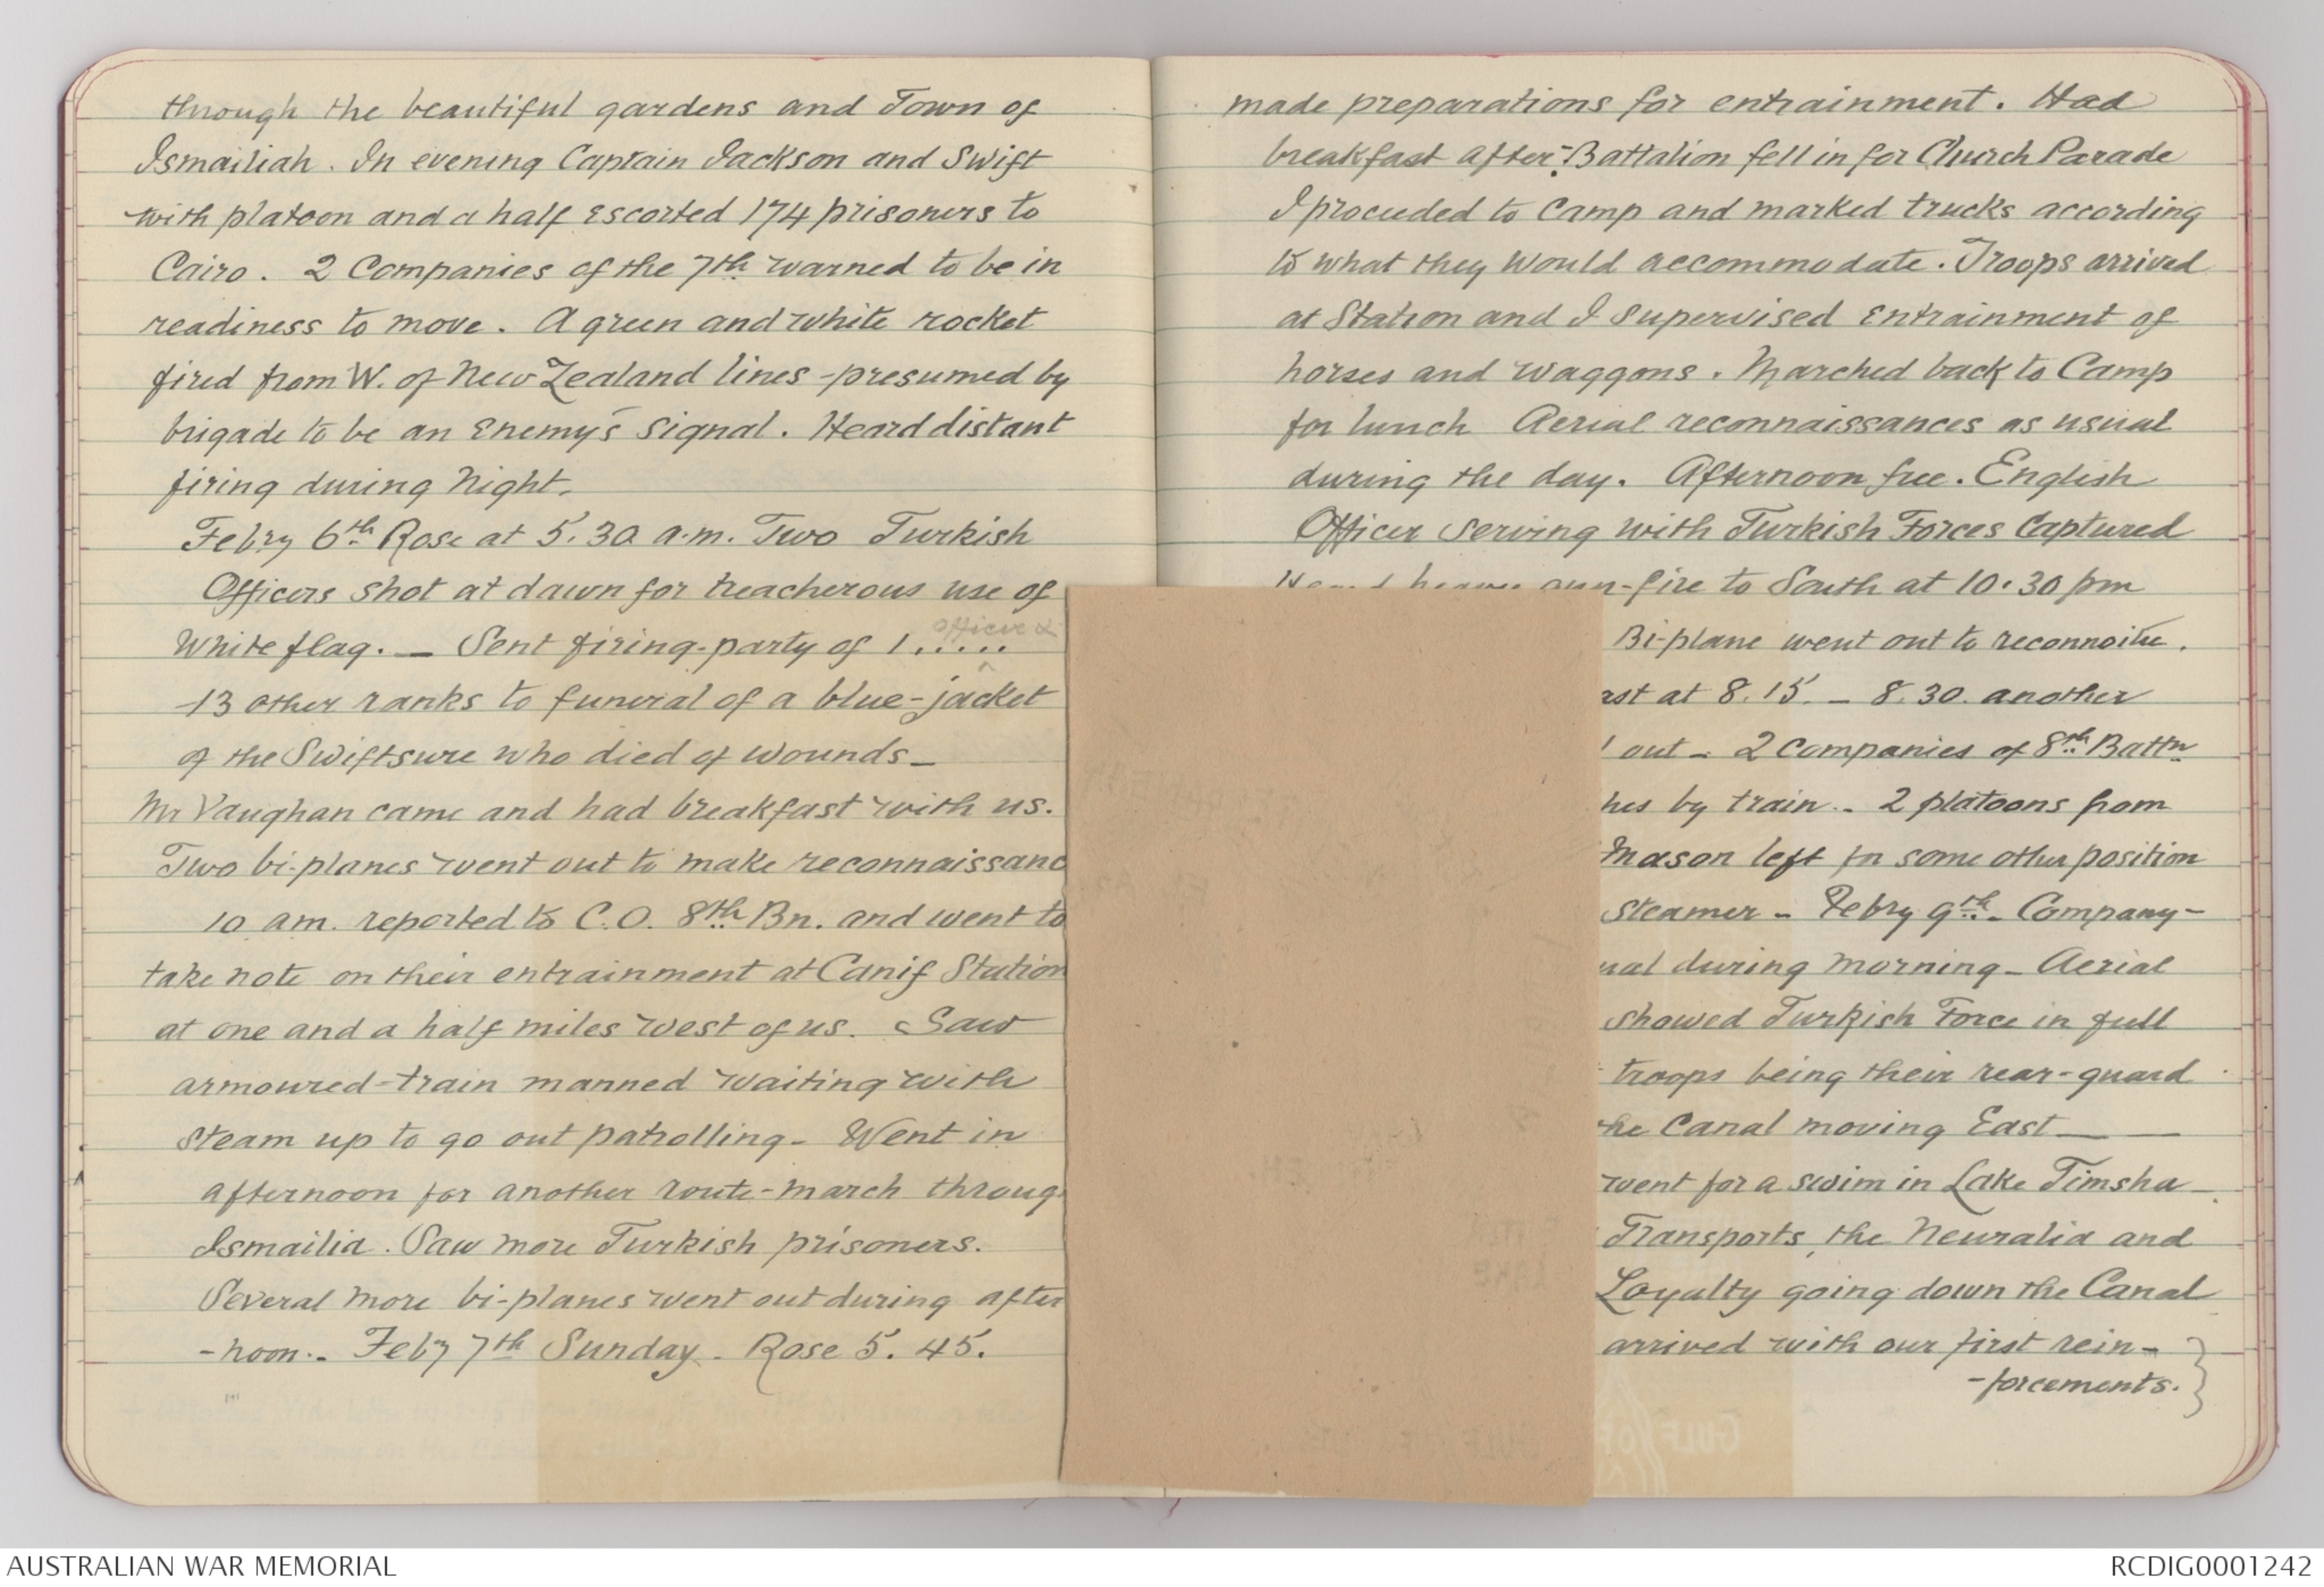 through the beautiful gardens and Town of
Ismailiah. In evening Captain Jackson and Swift
with platoon and a half escorted 174 prisoners to
Cairo. 2 Companies of the 7th warned to be in
readiness to move. A green and white rocket
fired from W. of New Zealand lines - presumed by
brigade to be an Enemy's signal. Heard distant
firing during Night.
Febry 6th Rose at 5.30 a.m. Two Turkish
Officers shot at dawn for treacherous use of
White flag. _ Sent firing-party of 1.....
officer &
13 other ranks to funeral of a blue-jacket
of the Swiftsure who died of wounds _
Mr Vaughan came and had breakfast with us.
Two bi-planes went out to make reconnaissanc
10 am. reported to C.O. 8th Bn. and went to
take note on their entrainment at Canif Station
at one and a half miles west of us. Saw
armoured-train manned waiting with
steam up to go out patrolling - Went in
afternoon for another route-march throug
Ismailia. Saw more Turkish prisoners.
Several more bi-planes went out during after
-noon.- Feby 7th Sunday - Rose 5.45.
made preparations for entrainment. Had
breakfast after:- Battalion fell in for Church Parade
I proceeded to Camp and marked trucks according
to what they would accommodate. Troops arrived
at Station and I supervised Entrainment of
horses and waggons. Marched back to Camp
for lunch Aerial reconnaissances as usual
during the day. Afternoon free. English
Officer serving with Turkish Forces Captured
Heard heavy gun-fire to South at 10.30 pm
Bi-plane went out to reconnoitre.
ast at 8.15. - 8.30. another
out - 2 Companies of 8th Battn
hes by train. - 2 platoons from
Mason left for some other position
steamer - Febry 9th - Company-
ual during morning - Aerial
showed Turkish Force in full
troops being their rear-guard
he Canal moving East _ _
went for a swim in Lake Timsha -
Transports, the Neuralia and
Loyalty going down the Canal
arrived with our first rein-
-forcements.
GULF OF
AUSTRALIAN WAR MEMORIAL
RCDIG0001242